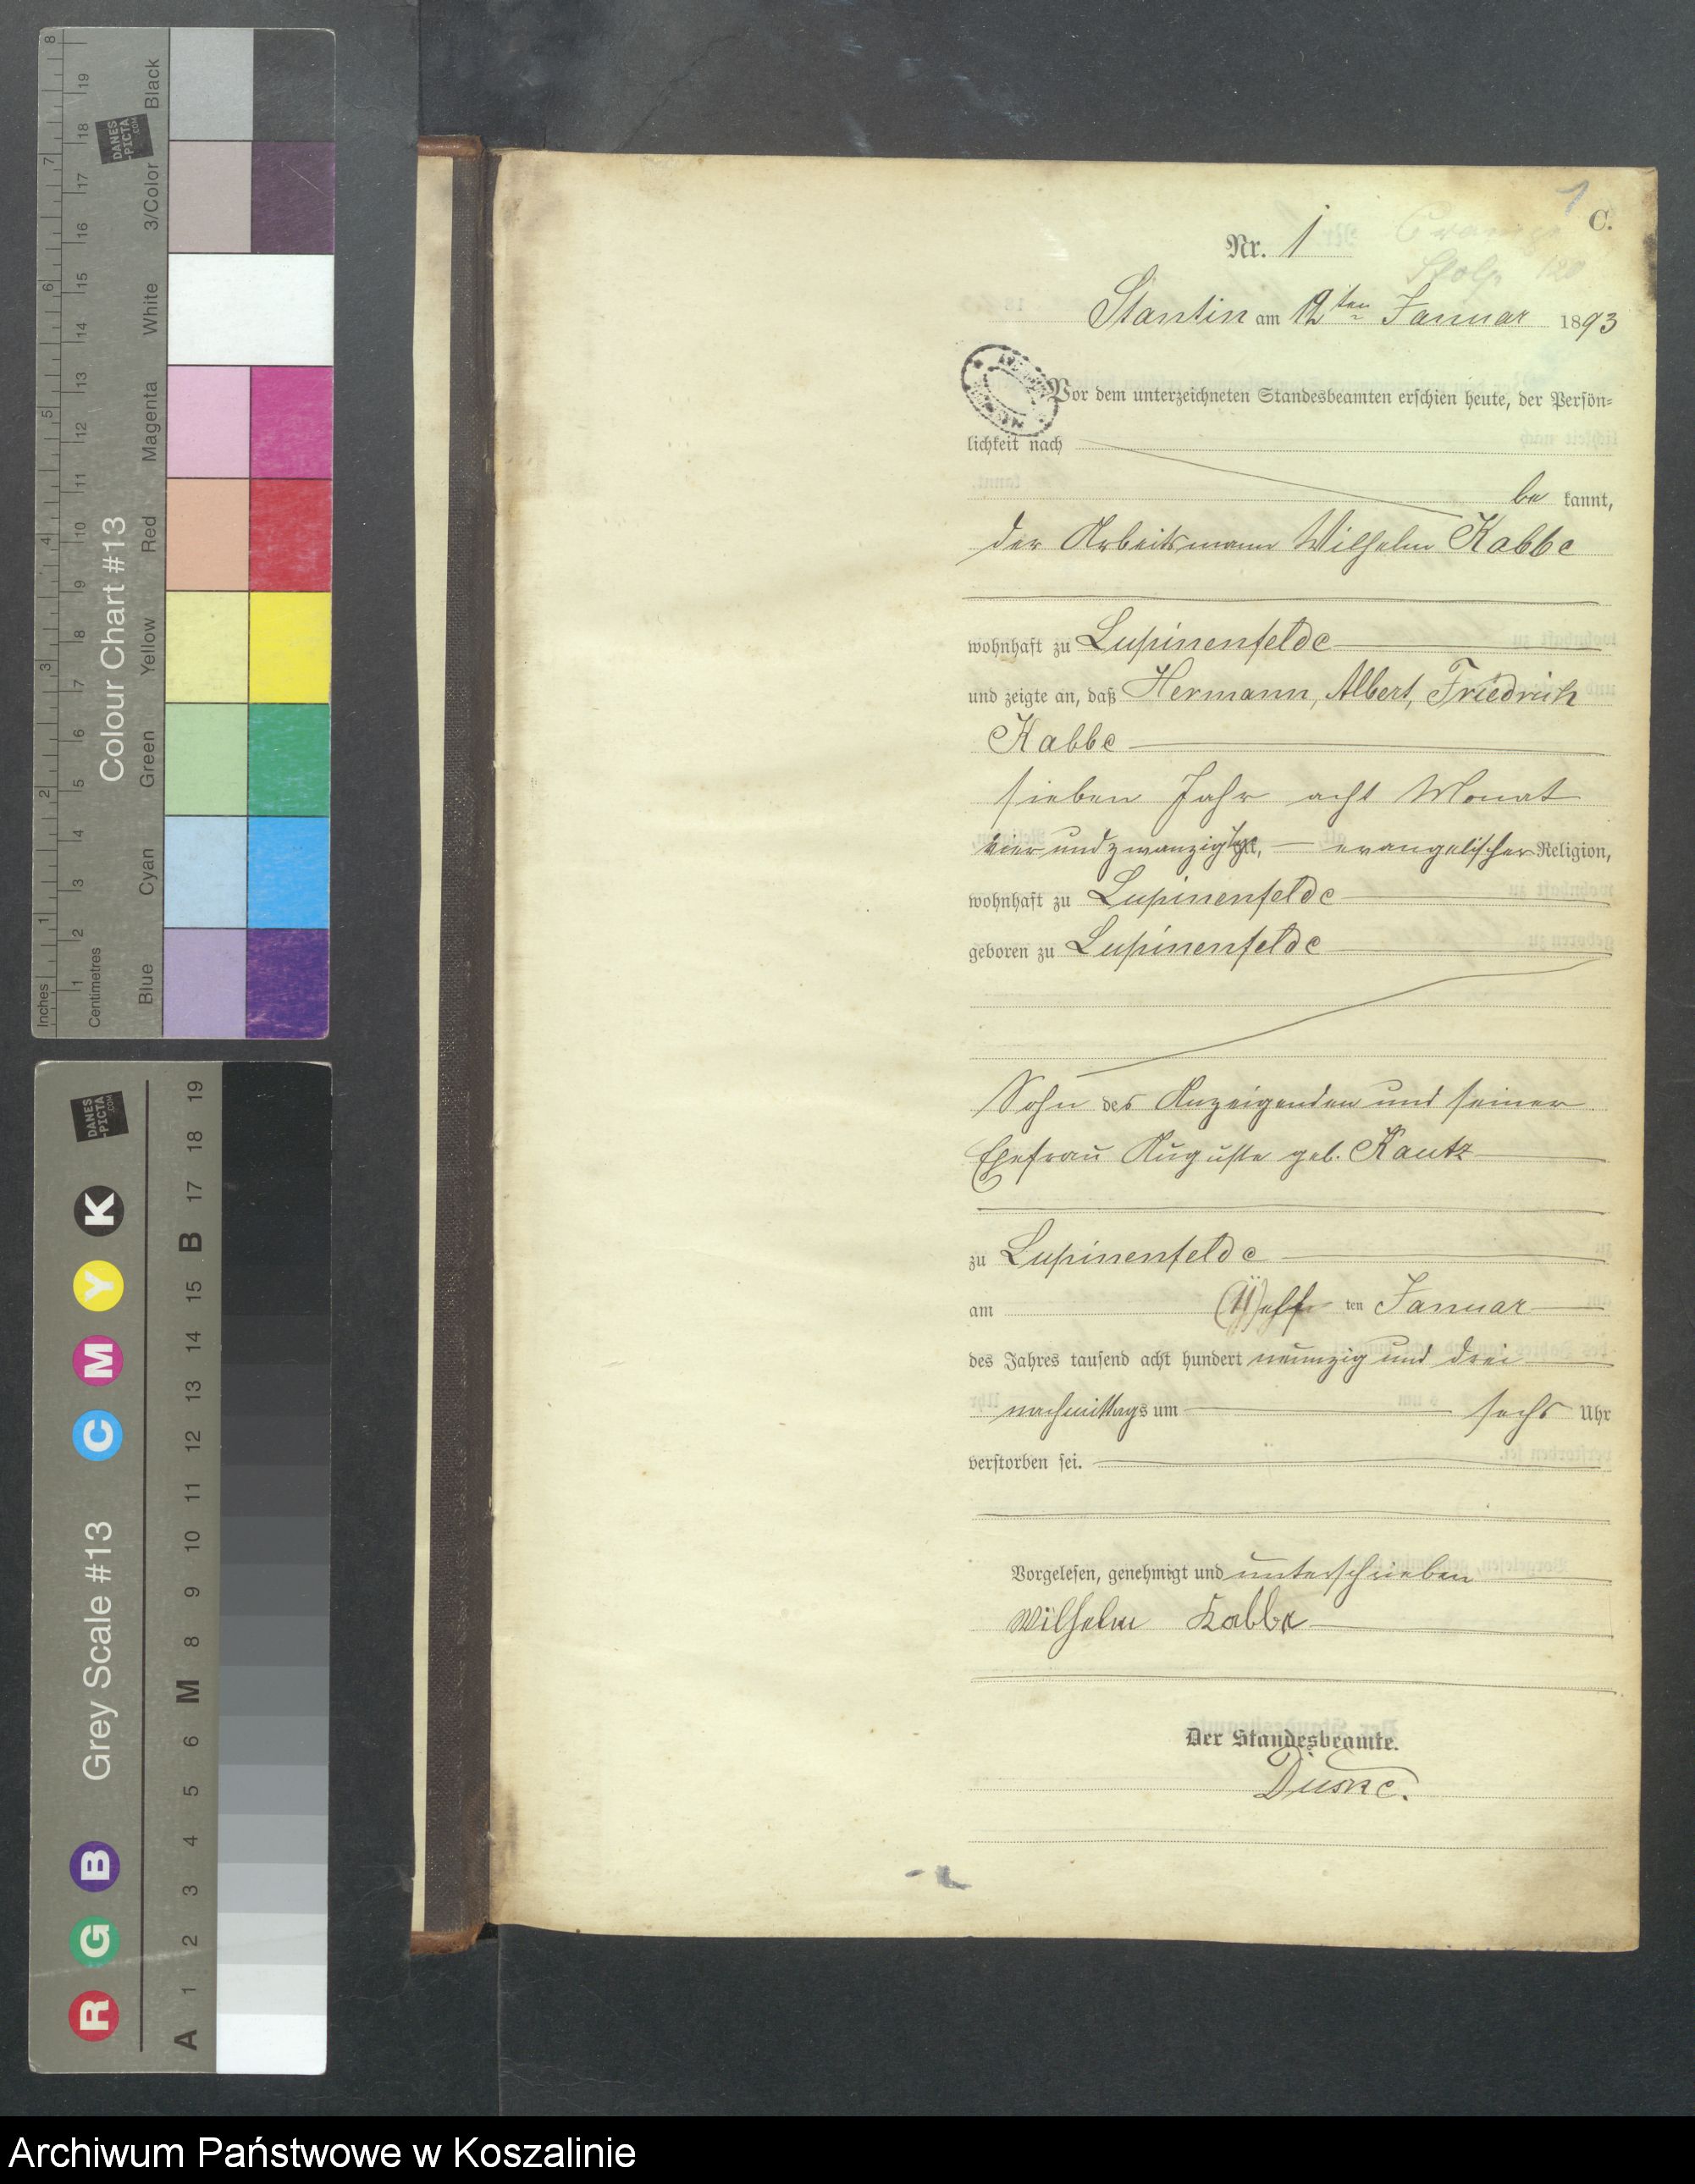 1
C.
Nr. 1
Stolp 120
Stantin am 12ten Januar 1893
Vor dem unterzeichneten Standesbeamten erschien heute, der Persön-
lichkeit nach
be kannt,
der Arbeitsmann Wilhelm Kabbe
wohnhaft zu Lupinenfelde
und zeigte an, daß Hermann, Albert, Friedrich
Kabbe
sieben Jahr acht Monat
vier und zwanzig Tge, evangelischer Religion,
wohnhaft zu Lupinenfelde
geboren zu Lupinenfelde
Sohn des Anzeigenden und seiner
Ehefrau Auguste geb. Kautz
zu Lupinenfelde
am (11) elf ten Januar
des Jahres tausend acht hundert neunzig und drei
nachmittags um sechs Uhr
verstorben sei.
Vorgelesen, genehmigt und unterschrieben
Wilhelm Kabbe
Der Standesbeamte.
Duske.
Colour Chart #13
Blue Cyan Green Yellow Red Magenta White 3/Color Black
Inches 1 2 3 4 5 6 7 8
Centimetres 1 2 3 4 5 6 7 8 9 10 11 12 13 14 15 16 17 18 19
DANES
-PICTA
.COM
Grey Scale #13
R G B C M Y K
A 1 2 3 4 5 6 M 8 9 10 11 12 13 14 15 B 17 18 19
DANES
-PICTA
.COM
Archiwum Państwowe w Koszalinie